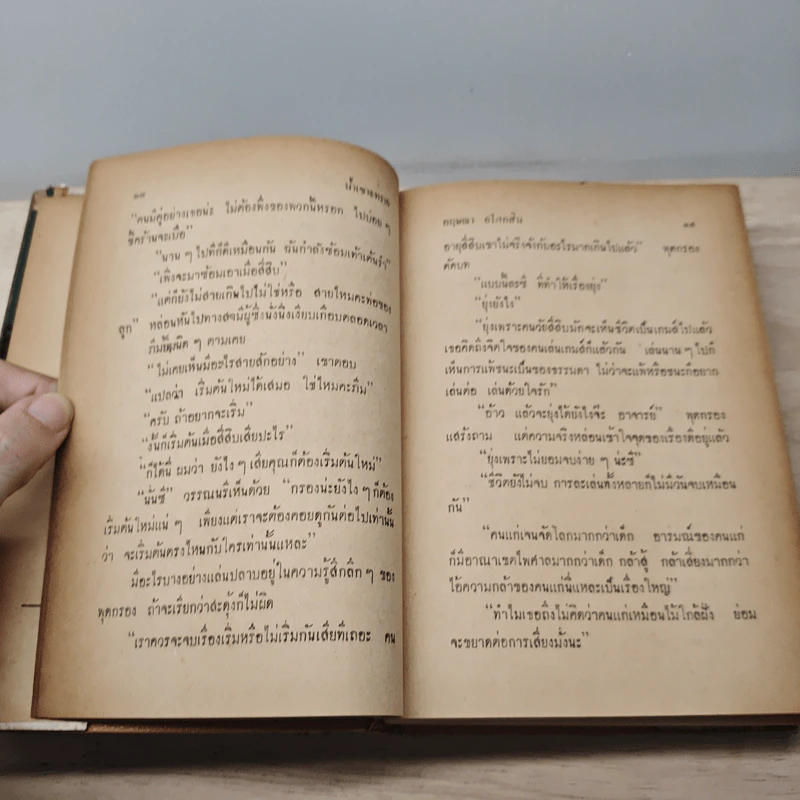 ๑๘
"คนมีคู่อย่างเธอน่ะ ไม่ต้องพึ่งของพวกนี้หรอก ไปบ่อย ๆ
ขี้คร้านจะเบื่อ"
"นาน ๆ ไปทีก็ดีเหมือนกัน ฉันกำลังซ้อมเท้าเต้นรำ"
"เพิ่งจะมาซ้อมเอาเมื่อสี่สิบ"
"แต่ก็ยังไม่สายเกินไปไม่ใช่หรือ สายไหมคะพ่อของ
ลูก" หล่อนหันไปทางสามีผู้ซึ่งนั่งนิ่งเงียบเกือบตลอดเวลา
ภีมยิ้มนิด ๆ ตามเคย
"ไม่เคยเห็นมีอะไรสายสักอย่าง" เขาตอบ
"แปลว่า เริ่มต้นใหม่ได้เสมอ ใช่ไหมคะภีม"
"ครับ ถ้าอยากจะเริ่ม"
"งั้นก็เริ่มต้นเมื่อสี่สิบเสียปะไร"
"ก็ได้นี่ ผมว่า ยังไง ๆ เสียคุณก็ต้องเริ่มต้นใหม่"
"นั่นซี" วรรณนรีเห็นด้วย "กรองน่ะยังไง ๆ ก็ต้อง
เริ่มต้นใหม่แน่ ๆ เพียงแต่เราจะต้องคอยดูกันต่อไปเท่านั้น
ว่า จะเริ่มต้นตรงไหนกับใครเท่านั้นแหละ"
มีอะไรบางอย่างแล่นปลาบอยู่ในความรู้สึกลึก ๆ ของ
พุดกรอง ถ้าจะเรียกว่าสะดุ้งก็ไม่ผิด
"เราควรจะจบเรื่องเริ่มหรือไม่เริ่มกันเสียทีเถอะ คน
กฤษณา อโศกสิน
๑๙
อายุสี่สิบเขาไม่จริงจังกับอะไรมากเกินไปแล้ว" พุดกรอง
ตัดบท
"แบบนี้ละซี ที่ทำให้เรื่องยุ่ง"
"ยุ่งยังไง"
"ยุ่งเพราะคนวัยสี่สิบมักจะเห็นชีวิตเป็นเกมส์ไปแล้ว
เธอคิดถึงจิตใจของคนเล่นเกมส์ก็แล้วกัน เล่นนาน ๆ ไปก็
เห็นการแพ้ชนะเป็นของธรรมดา ไม่ว่าจะแพ้หรือชนะก็อยาก
เล่นต่อ เล่นด้วยใจรัก"
"อ้าว แล้วจะยุ่งได้ยังไงจ๊ะ อาจารย์" พุดกรอง
แสร้งถาม แต่ความจริงหล่อนเข้าใจจุดของเรื่องดีอยู่แล้ว
"ยุ่งเพราะไม่ยอมจบง่าย ๆ น่ะซี"
"ชีวิตยังไม่จบ การละเล่นทั้งหลายก็ไม่มีวันจบเหมือน
กัน"
"คนแก่เจนจัดโลกมากกว่าเด็ก อารมณ์ของคนแก่
ก็มีอาณาเขตไพศาลมากกว่าเด็ก กล้าสู้ กล้าเสี่ยงมากกว่า
ไอ้ความกล้าของคนแก่นี่แหละเป็นเรื่องใหญ่"
"ทำไมเธอถึงไม่คิดว่าคนแก่เหมือนไม้ใกล้ฝั่ง ย่อม
จะขยาดต่อการเสี่ยงมั่งนะ"